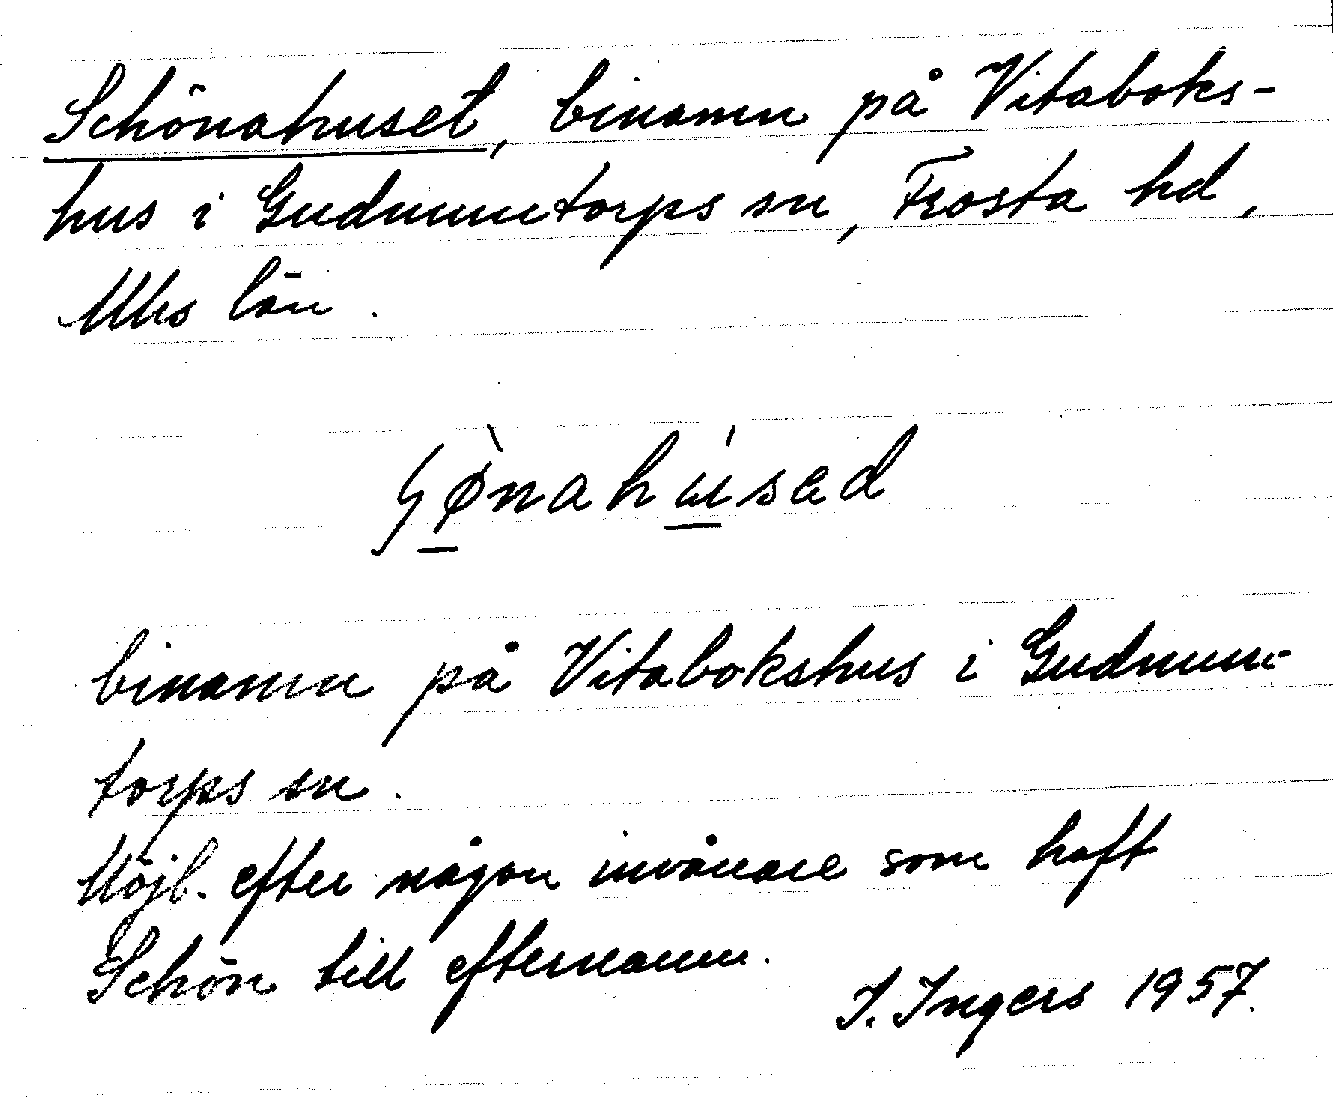 Schönahuset, binamn på Vitaboks-
hus i Gudmuntorps sn, Frosta hd,
Mhs län.
binamn på Vitabokshus i Gudmun-
torps sn.
Möjl. efter någon invånare som haft
Schön till efternamn.
I. Ingers 1957.